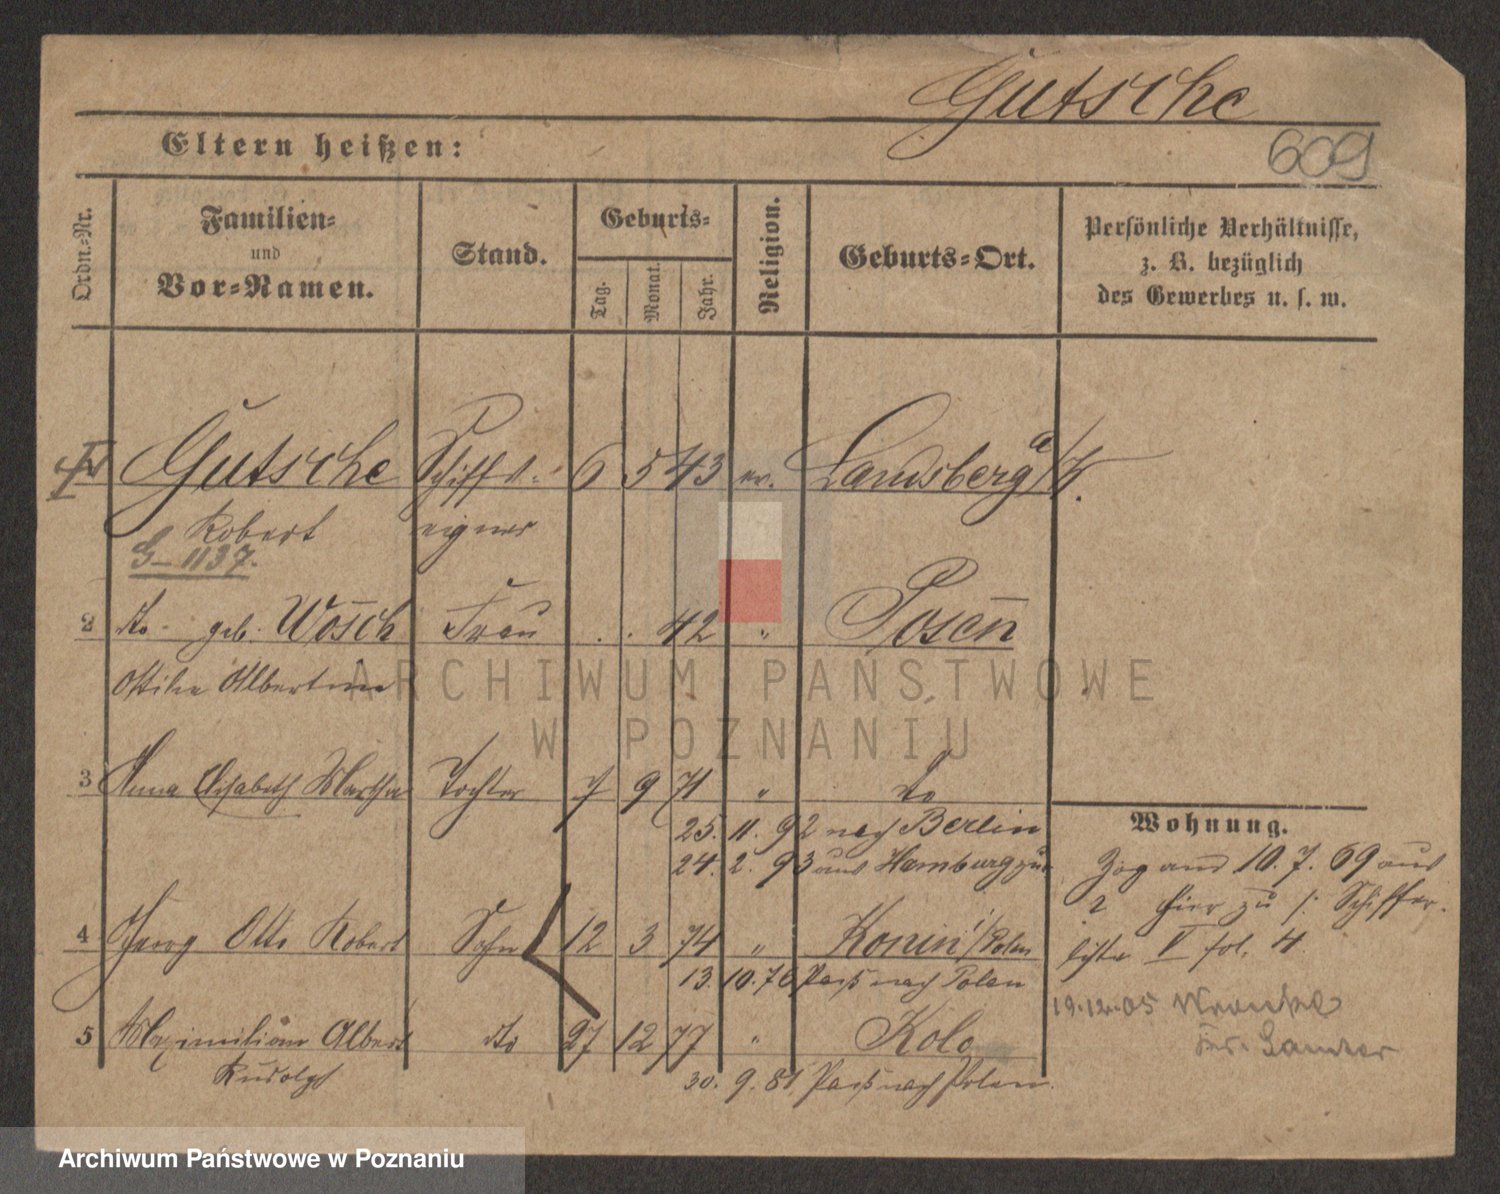 Gutsche
609
Eltern heißen:
Ordn.-Nr.
Familien- und Vor-Namen.
Stand.
Geburts-
Tag.
Monat.
Jahr.
Religion.
Geburts-Ort.
Persönliche Verhältnisse,
z. B. bezüglich
des Gewerbes u. s. w.
Gutsche Schiffs- 6 5 43 ev. Landsberg a/W.
Robert eigner
G- 1137.
2 do geb. Wosch Frau . . 42 " Posen
Ottilie Albertine
ARCHIWUM PAŃSTWOWE
W POZNANIU
3 Anna Elisabeth Martha Tochter 7 9 71 " do
25. 11. 92 nach Berlin
24. 2. 93 aus Hamburg zur
Wohnung.
Zog am 10. 7. 69 aus
2 hier zu s. Schiffer-
liste V fol. 4
4 Georg Otto Robert Sohn 12 3 74 " Konin i/Polen
13. 10. 76 Pass nach Polen
19.12.05
5 Maximilian Albert do 27 12 77 " Kolo
Rudolf
30. 9. 81 Pass nach Polen.
Archiwum Państwowe w Poznaniu